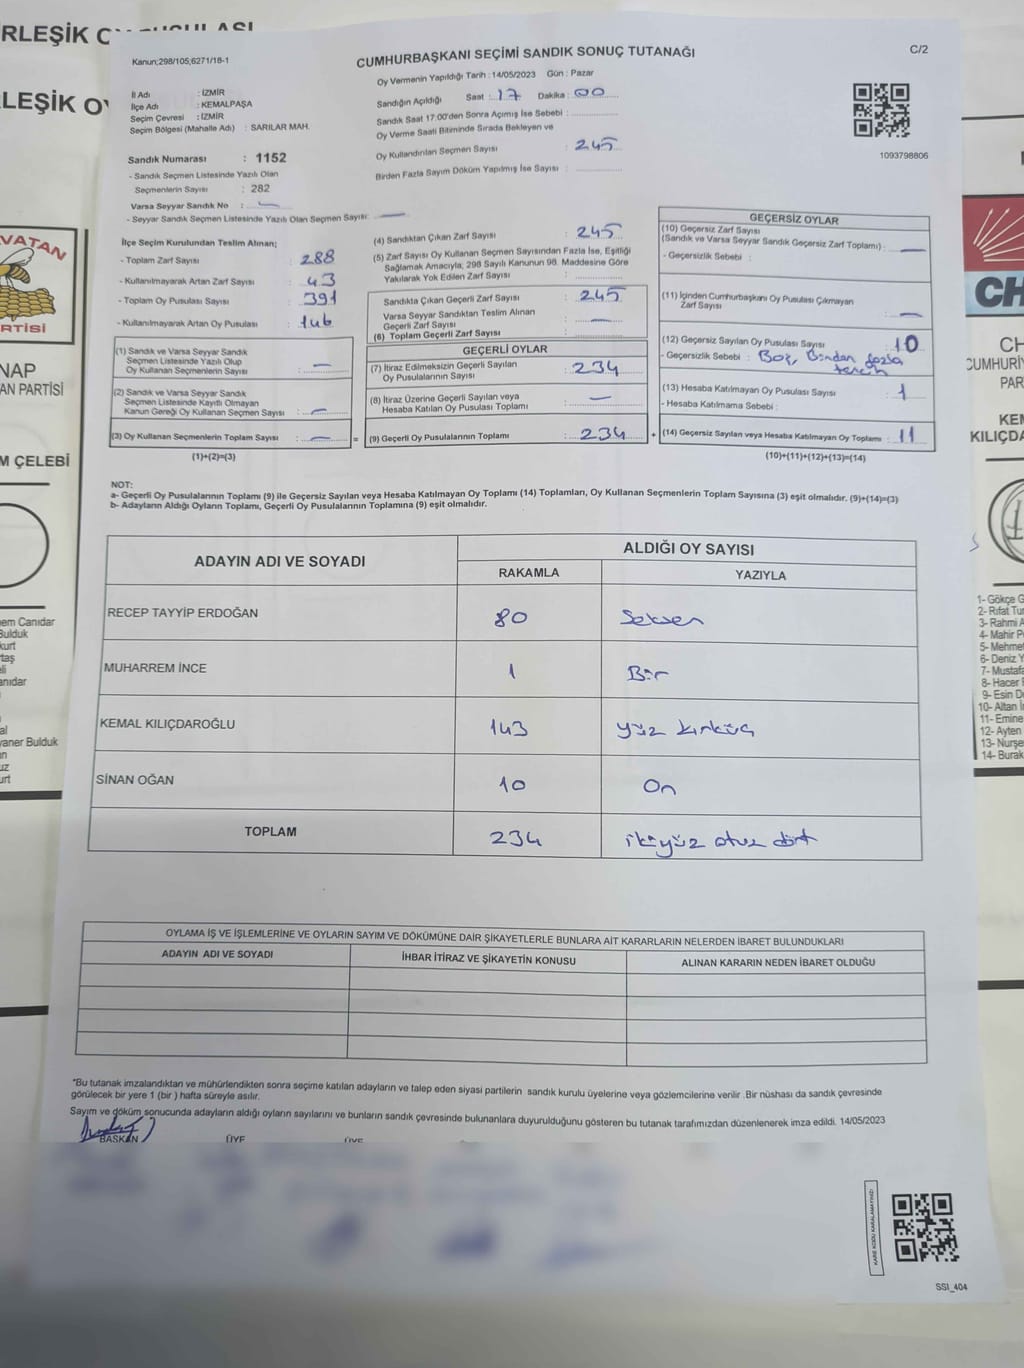 Kanun;298/105,6271/16-1
CUMHURBAŞKANI SEÇİMİ SANDIK SONUÇ TUTANAĞI
C/2
Oy Vermenin Yapıldığı Tarih : 14/05/2023 Gün : Pazar
İl Adı : İZMİR
İlçe Adı : KEMALPAŞA
Seçim Çevresi : İZMİR
Seçim Bölgesi (Mahalle Adı) : SARILAR MAH.
Sandık Numarası : 1152
- Sandık Seçmen Listesinde Yazılı Olan
Seçmenlerin Sayısı : 282
Varsa Seyyar Sandık No : —
- Seyyar Sandık Seçmen Listesinde Yazılı Olan Seçmen Sayısı: —
Sandığın Açıldığı Saat : 17 Dakika : 00
Sandık Saat 17:00'den Sonra Açımış İse Sebebi :
Oy Verme Saati Bitiminde Sırada Bekleyen ve
Oy Kullandırılan Seçmen Sayısı : 245
Birden Fazla Sayım Döküm Yapılmış İse Sayısı :
1093798806
İlçe Seçim Kurulundan Teslim Alınan;
- Toplam Zarf Sayısı : 288
- Kullanılmayarak Artan Zarf Sayısı : 43
- Toplam Oy Pusulası Sayısı : 391
- Kullanılmayarak Artan Oy Pusulası : 146
(1) Sandık ve Varsa Seyyar Sandık
Seçmen Listesinde Yazılı Olup
Oy Kullanan Seçmenlerin Sayısı : —
(2) Sandık ve Varsa Seyyar Sandık
Seçmen Listesinde Kayıtlı Olmayan
Kanun Gereği Oy Kullanan Seçmen Sayısı : —
(3) Oy Kullanan Seçmenlerin Toplam Sayısı : — =
(1)+(2)=(3)
(4) Sandıktan Çıkan Zarf Sayısı : 245
(5) Zarf Sayısı Oy Kullanan Seçmen Sayısından Fazla İse, Eşitliği
Sağlamak Amacıyla; 298 Sayılı Kanunun 98. Maddesine Göre
Yakılarak Yok Edilen Zarf Sayısı :
Sandıkta Çıkan Geçerli Zarf Sayısı : 245
Varsa Seyyar Sandıktan Teslim Alınan
Geçerli Zarf Sayısı : —
(6) Toplam Geçerli Zarf Sayısı :
GEÇERLİ OYLAR
(7) İtiraz Edilmeksizin Geçerli Sayılan
Oy Pusulalarının Sayısı : 234
(8) İtiraz Üzerine Geçerli Sayılan veya
Hesaba Katılan Oy Pusulası Toplamı : —
(9) Geçerli Oy Pusulalarının Toplamı : 234 +
GEÇERSİZ OYLAR
(10) Geçersiz Zarf Sayısı
(Sandık ve Varsa Seyyar Sandık Geçersiz Zarf Toplamı) : —
- Geçersizlik Sebebi :
(11) İçinden Cumhurbaşkanı Oy Pusulası Çıkmayan
Zarf Sayısı : —
(12) Geçersiz Sayılan Oy Pusulası Sayısı : 10
- Geçersizlik Sebebi : Boş, Birden fazla
tercih
(13) Hesaba Katılmayan Oy Pusulası Sayısı : 1
- Hesaba Katılmama Sebebi :
(14) Geçersiz Sayılan veya Hesaba Katılmayan Oy Toplamı : 11
(10)+(11)+(12)+(13)=(14)
NOT:
a- Geçerli Oy Pusulalarının Toplamı (9) ile Geçersiz Sayılan veya Hesaba Katılmayan Oy Toplamı (14) Toplamları, Oy Kullanan Seçmenlerin Toplam Sayısına (3) eşit olmalıdır. (9)+(14)=(3)
b- Adayların Aldığı Oyların Toplamı, Geçerli Oy Pusulalarının Toplamına (9) eşit olmalıdır.
ADAYIN ADI VE SOYADI
ALDIĞI OY SAYISI
RAKAMLA YAZIYLA
RECEP TAYYİP ERDOĞAN 80 Seksen
MUHARREM İNCE 1 Bir
KEMAL KILIÇDAROĞLU 143 yüz kırküç
SİNAN OĞAN 10 On
TOPLAM 234 ikiyüz otuz dört
OYLAMA İŞ VE İŞLEMLERİNE VE OYLARIN SAYIM VE DÖKÜMÜNE DAİR ŞİKAYETLERLE BUNLARA AİT KARARLARIN NELERDEN İBARET BULUNDUKLARI
ADAYIN ADI VE SOYADI İHBAR İTİRAZ VE ŞİKAYETİN KONUSU ALINAN KARARIN NEDEN İBARET OLDUĞU
*Bu tutanak imzalandıktan ve mühürlendikten sonra seçime katılan adayların ve talep eden siyasi partilerin sandık kurulu üyelerine veya gözlemcilerine verilir .Bir nüshası da sandık çevresinde
görülecek bir yere 1 (bir ) hafta süreyle asılır.
Sayım ve döküm sonucunda adayların aldığı oyların sayılarını ve bunların sandık çevresinde bulunanlara duyurulduğunu gösteren bu tutanak tarafımızdan düzenlenerek imza edildi. 14/05/2023
BAŞKAN ÜYE ÜYE
KARE KODU KARALAMAYINIZ!
SSI_404
VATAN
CH
1- Gökçe G
2- Rıfat Tur
3- Rahmi A
4- Mahir P
5- Mehmet
6- Deniz Y
7- Mustafa
8- Hacer
9- Esin D
10- Altan İ
11- Emine
12- Ayten
13- Nurşe
14- Burak